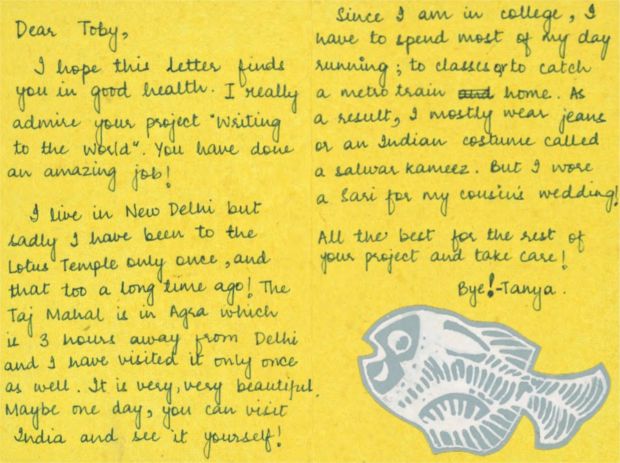 Dear Toby,
I hope this letter finds
you in good health. I really
admire your project "Writing
to the World". You have done
an amazing job!
I live in New Delhi but
sadly I have been to the
Lotus Temple only once, and
that too a long time ago! The
Taj Mahal is in Agra which
is 3 hours away from Delhi
and I have visited it only once
as well. It is very, very beautiful.
Maybe one day, you can visit
India and see it yourself!
Since I am in college, I
have to spend most of my day
running; to classes or to catch
a metro train and home. As
a result, I mostly wear jeans
or an Indian costume called
a salwar kameez. But I wore
a Sari for my cousin's wedding!
All the best for the rest of
your project and take care!
Bye! - Tanya.